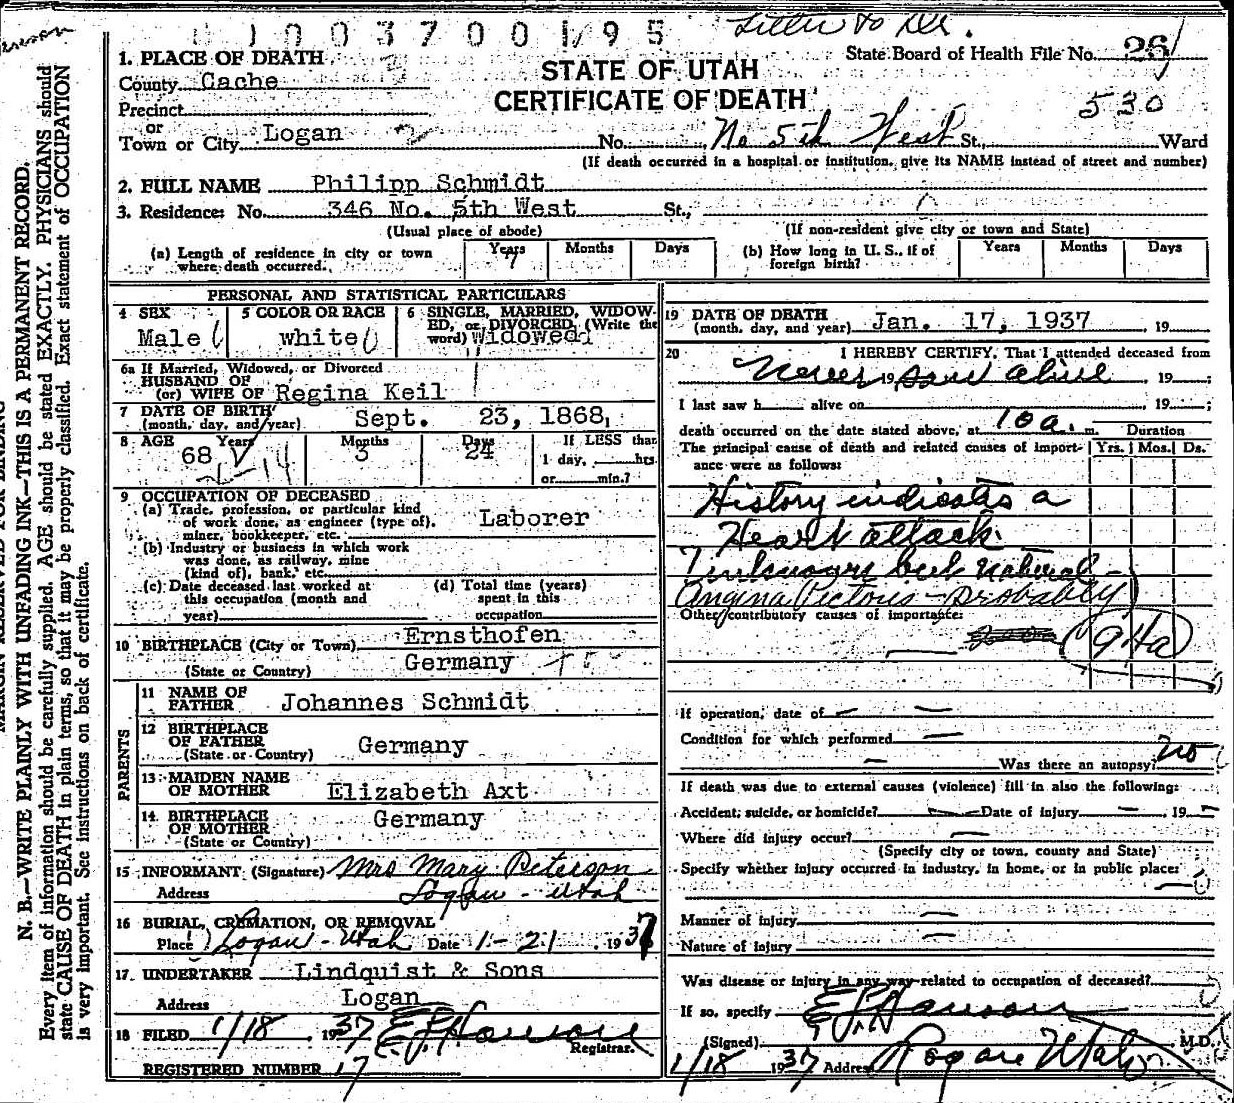 003700195
Letter to
State Board of Health File No. 26
1. PLACE OF DEATH
County Cache
STATE OF UTAH
CERTIFICATE OF DEATH
530
Precinct
or
Town or City Logan No. No 5th West St., Ward
(If death occurred in a hospital or institution, give its NAME instead of street and number)
2. FULL NAME Philipp Schmidt
3. Residence: No. 346 No. 5th West St.,
(Usual place of abode) (If non-resident give city or town and State)
(a) Length of residence in city or town where death occurred. Years Months Days (b) How long in U. S., if of foreign birth? Years Months Days
PERSONAL AND STATISTICAL PARTICULARS
4 SEX Male
5 COLOR OR RACE white
6 SINGLE, MARRIED, WIDOWED, or DIVORCED (Write the word) Widowed
6a If Married, Widowed, or Divorced
HUSBAND OF
(or) WIFE OF Regina Keil
7 DATE OF BIRTH
(month, day, and year) Sept. 23, 1868
8 AGE Years 68 Months 3 Days 24 If LESS than 1 day, hrs. or min.?
9 OCCUPATION OF DECEASED
(a) Trade, profession, or particular kind
of work done, as engineer (type of), Laborer
miner, bookkeeper, etc.
(b) Industry or business in which work
was done, as railway, mine
(kind of), bank, etc.
(c) Date deceased last worked at
this occupation (month and
year)
(d) Total time (years)
spent in this
occupation
10 BIRTHPLACE (City or Town) Ernsthofen
(State or Country) Germany
PARENTS
11 NAME OF
FATHER Johannes Schmidt
12 BIRTHPLACE
OF FATHER Germany
(State or Country)
13 MAIDEN NAME
OF MOTHER Elizabeth Axt
14 BIRTHPLACE
OF MOTHER Germany
(State or Country)
15 INFORMANT (Signature) Mrs Mary Peterson
Address Logan - Utah
16 BURIAL, CREMATION, OR REMOVAL
Place Logan - Utah Date 1-21, 1937
17. UNDERTAKER Lindquist & Sons
Address Logan
18 FILED 1/18 1937 E. J. Hanson
Registrar.
REGISTERED NUMBER 17
19 DATE OF DEATH
(month, day, and year) Jan. 17, 1937, 19
20 I HEREBY CERTIFY, That I attended deceased from
Never 19 saw alive, 19 ;
I last saw h alive on , 19 ;
death occurred on the date stated above, at 10 a. m. Duration
The principal cause of death and related causes of importance were as follows: Yrs. Mos. Ds.
History indicates a
Heart attack.
Unknown but natural -
Angina Pectoris - probably
Other contributory causes of importance:
If operation, date of
Condition for which performed
Was there an autopsy? no
If death was due to external causes (violence) fill in also the following:
Accident, suicide, or homicide? Date of injury , 19
Where did injury occur?
(Specify city or town, county and State)
Specify whether injury occurred in industry, in home, or in public place:
Manner of injury
Nature of injury
Was disease or injury in any way related to occupation of deceased?
If so, specify
(Signed) E. J. Hanson, M.D.
1/18 1937 Address Logan Utah
N. B.—WRITE PLAINLY WITH UNFADING INK—THIS IS A PERMANENT RECORD.
Every item of information should be carefully supplied. AGE should be stated EXACTLY. PHYSICIANS should
state CAUSE OF DEATH in plain terms, so that it may be properly classified. Exact statement of OCCUPATION
is very important. See instructions on back of certificate.